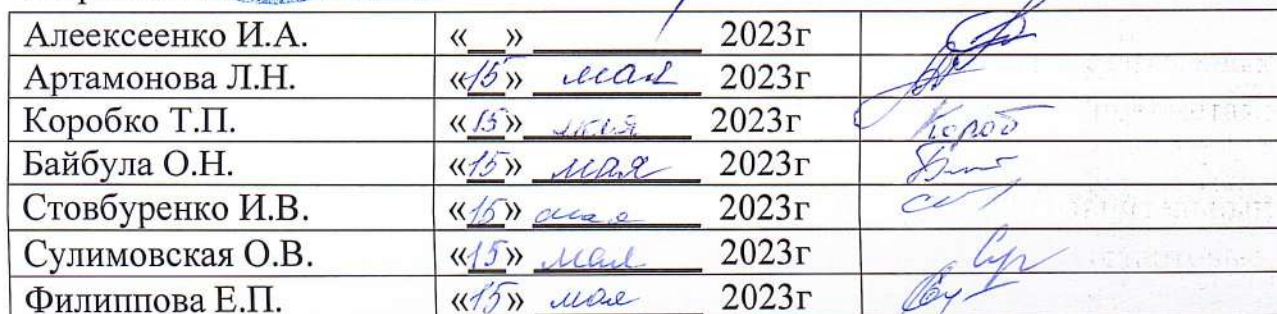 Алеексеенко И.А. «__» ____________ 2023г
Артамонова Л.Н. «15» мая 2023г
Коробко Т.П. «15» мая 2023г Короб
Байбула О.Н. «15» мая 2023г
Стовбуренко И.В. «15» мая 2023г
Сулимовская О.В. «15» мая 2023г
Филиппова Е.П. «15» мая 2023г